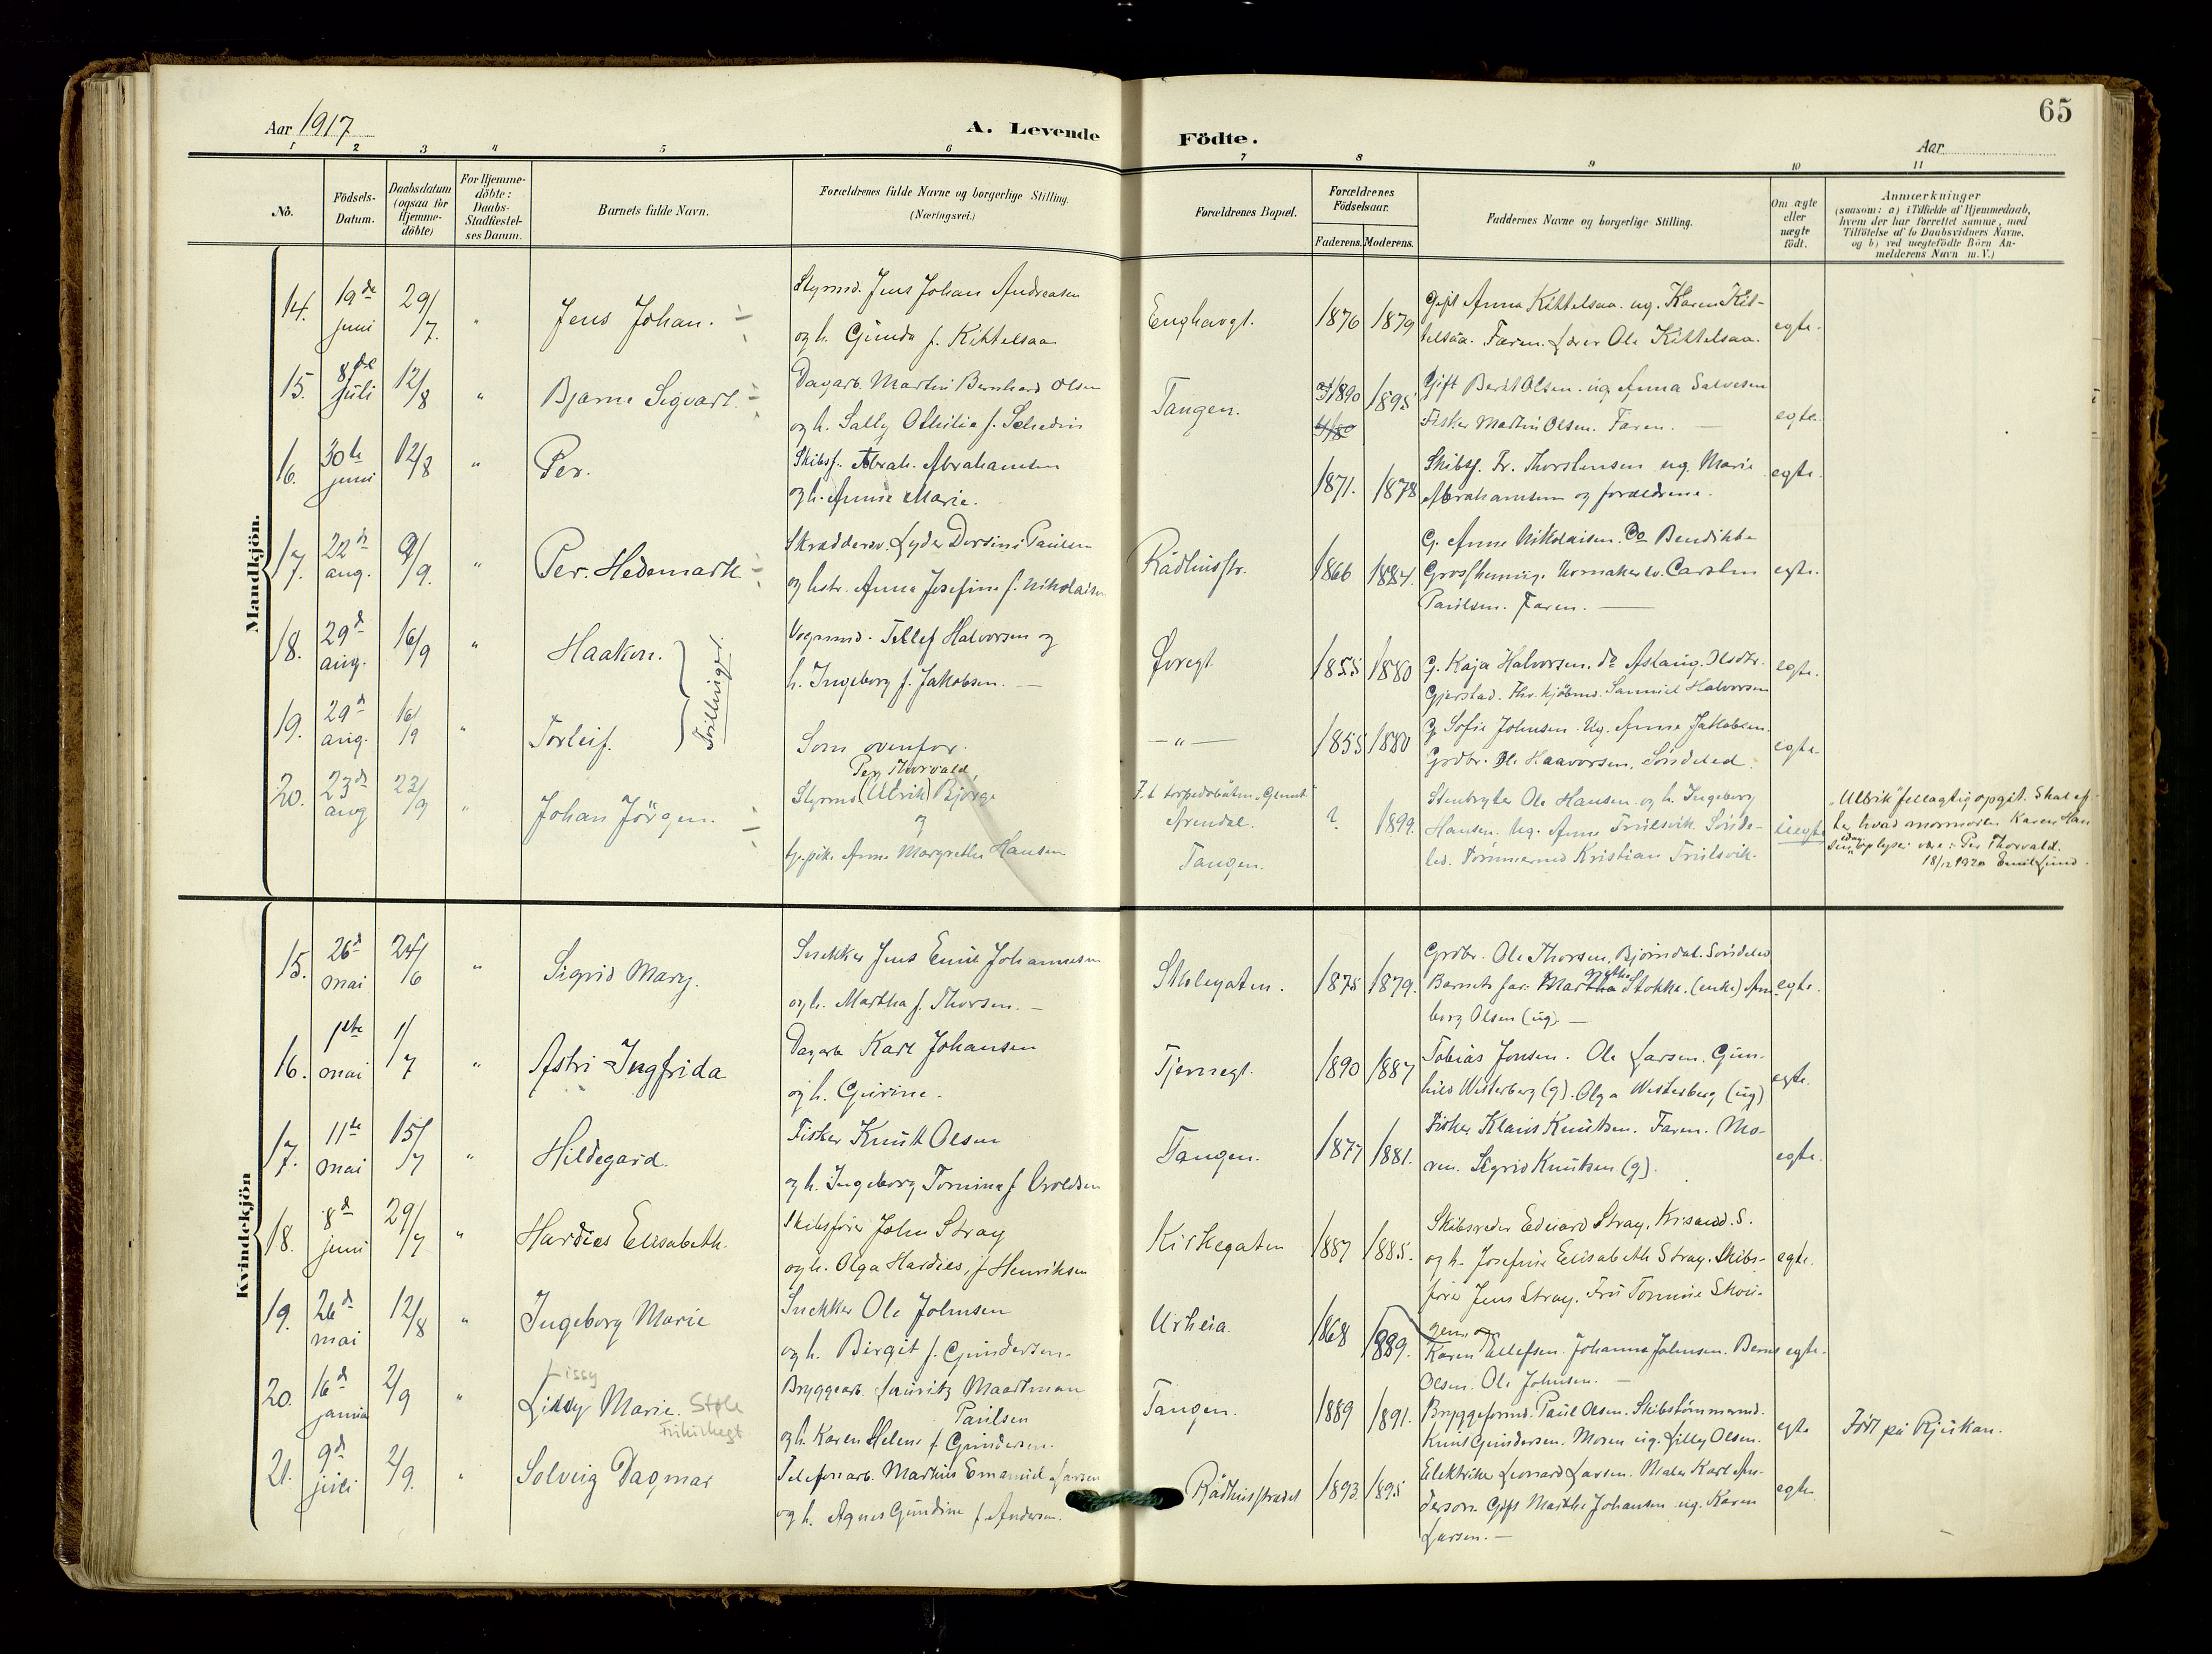 65
Aar 1917
A. Levende Födte.
Aar
1 2 3 4 5 6 7 8 9 10 11
No.
Födsels-
Datum.
Daabsdatum
(ogsaa for
Hjemme-
döbte)
For Hjemme-
döbte:
Daabs-
Stadfestel-
ses Datum.
Barnets fulde Navn.
Forældrenes fulde Navne og borgerlige Stilling.
(Næringsvei.)
Forældrenes Bopæl.
Forældrenes
Födselsaar.
Faderens. Moderens.
Faddernes Navne og borgerlige Stilling.
Om ægte
eller
uægte
födt.
Anmærkninger
(saasom: a) i Tilfælde af Hjemmedaab,
hvem der har forrettet samme, med
Tilföielse af to Daabsvidners Navne,
og b) ved uægtefödte Börn An-
melderens Navn m. V.)
Mandkjön.
14. 19de juni 29/7. " Jens Johan.
Styrmd. Jens Johan Andreasen
og h. Gunda f. Kittelsaa
Enghavgt. 1876 1879
Gift Anna Kittelsaa. ug. Karen Kit-
telsaa. Faren. Lærer Ole Kittelsaa.
egte.
15. 8de juli 12/8 " Bjarne Sigvart.
Dagarb. Martin Bernhard Olsen
og h. Sally Othilie f. Schedin
Tangen. 1890 1895
Gift Berit Olsen. ug. Anna Salvesen
Fisker Martin Olsen. Faren. —
egte.
16. 30te juni 12/8 " Per.
Skibsf. Abrah. Abrahamsen
og h. Annie Marie.
1871. 1878
Skibsf. Fr. Thorstensen ug. Marie
Abrahamsen og forældrene.
egte.
17. 22de aug. 9/9. " Per. Hedemark
Skræddersv. Lyder Dorsini Paulsen
og hstr. Anna Josefine f. Nikolaisen
Rådhusstr. 1866 1884.
G. Anne Nikolaisen. Do Bendikte
Grosshennig. Urmakersv. Carsten
Paulsen. Faren. —
egte.
18. 29de aug. 16/9 " Haakon.
Tvillinger.
Vognmd. Tellef Halvorsen og
h. Ingeborg f. Jakobsen. —
Øvregt. 1855 1880
G. Kaja Halvorsen. do Aslaug Olsdtr.
Gjerstad. Fhv. kjöbmd. Samuel Halvorsen
egte.
19. 29de aug. 16/9 " Torleif.
Som ovenfor.
—"— 1855 1880
G. Sofie Johnsen. Ug. Anne Jakobsen.
Grdbr. Ole Haavorsen, Söndeled.
egte.
20. 23de aug 23/9 " Johan Jörgen.
Per Thorvald
Styrmd (Ulrik) Bjørge
og
tj. pike Anne Margrethe Hansen
F.t. torpedobåten "Glimt"
Arendal.
Tangen.
? 1899.
Stenbryter Ole Hansen og h. Ingeborg
Hansen. Ug. Anne Trulsvik. Sönde-
led. Tömmermd Kristian Trulsvik.
uegte
"Ulrik" feilagtig opgit. Skal ef-
ter hvad mormoren Karen Han
sen idag oplyser være: Per Thorvald.
18/12 1920 Emil Lund.
Kvindekjön
15. 26de mai 24/6 " Sigrid Mary.
Snekker Jens Emil Johannesen
og h. Martha f. Thorsen. —
Skolegaten. 1875 1879.
Grdbr. Ole Thorsen, Bjorndal. Söndeled
Barnets far. Martha Stokke. (enke) Am
borg Olsen (ug). —
egte.
16. 1ste mai 1/7 " Astri-Ingfrida
Dagarb Karl Johansen
og h. Gurine.
Tjernegt. 1890 1887
Tobias Jonsen. Ole Larsen. Gun-
hild Westerberg (g). Olga Westerberg (ug)
egte.
17. 11te mai 15/7 " Hildegard.
Fisker Knut Olsen
og h. Ingeborg Tomine f. Oroldsen
Tangen. 1877 1881.
Fisker Klaus Knutsen. Faren. Mo-
ren. Sigrid Knutsen (g).
egte.
18. 8de juni 29/7 " Hardies Elisabeth.
Skibsfører John Stray
og h. Olga Hardies, f. Henriksen
Kirkegaten 1887 1885.
Skibsreder Edvard Stray, Krisand. S.
og h. Josefine Elisabeth Stray. Skibs-
fører Jens Stray. Fru Tomine Skou-
gen
egte.
19. 26de mai 12/8 " Ingeborg Marie
Snekker Ole Johnsen
og h. Birgit f. Gundersen.
Urheia. 1868 1889.
Karen Ellefsen. Johanne Johnsen. Bernt
Olsen. Ole Johnsen. —
egte.
20. 16de januar 2/9 " Lissy Marie. Støle
Lissy
Bryggearb. Lauritz Maartman
Paulsen
og h. Karen Helene f. Gundersen.
Tangen. 1889 1891.
Bryggeformd. Paul Olsen. Skibstömmermd.
Knut Gundersen. Moren ug. Lilly Olsen.
egte
Født på Rjukan.
21. 9de juli 2/9. " Solveig Dagmar
Telefonarb. Markus Emanuel Larsen
og h. Agnes Gundine f. Andersen.
Rådhusstrædet 1893. 1895
Elektriker Leonard Larsen. Maler Karl An-
derson. Gift Marthe Johansen ug. Karen
Larsen. —
egte.